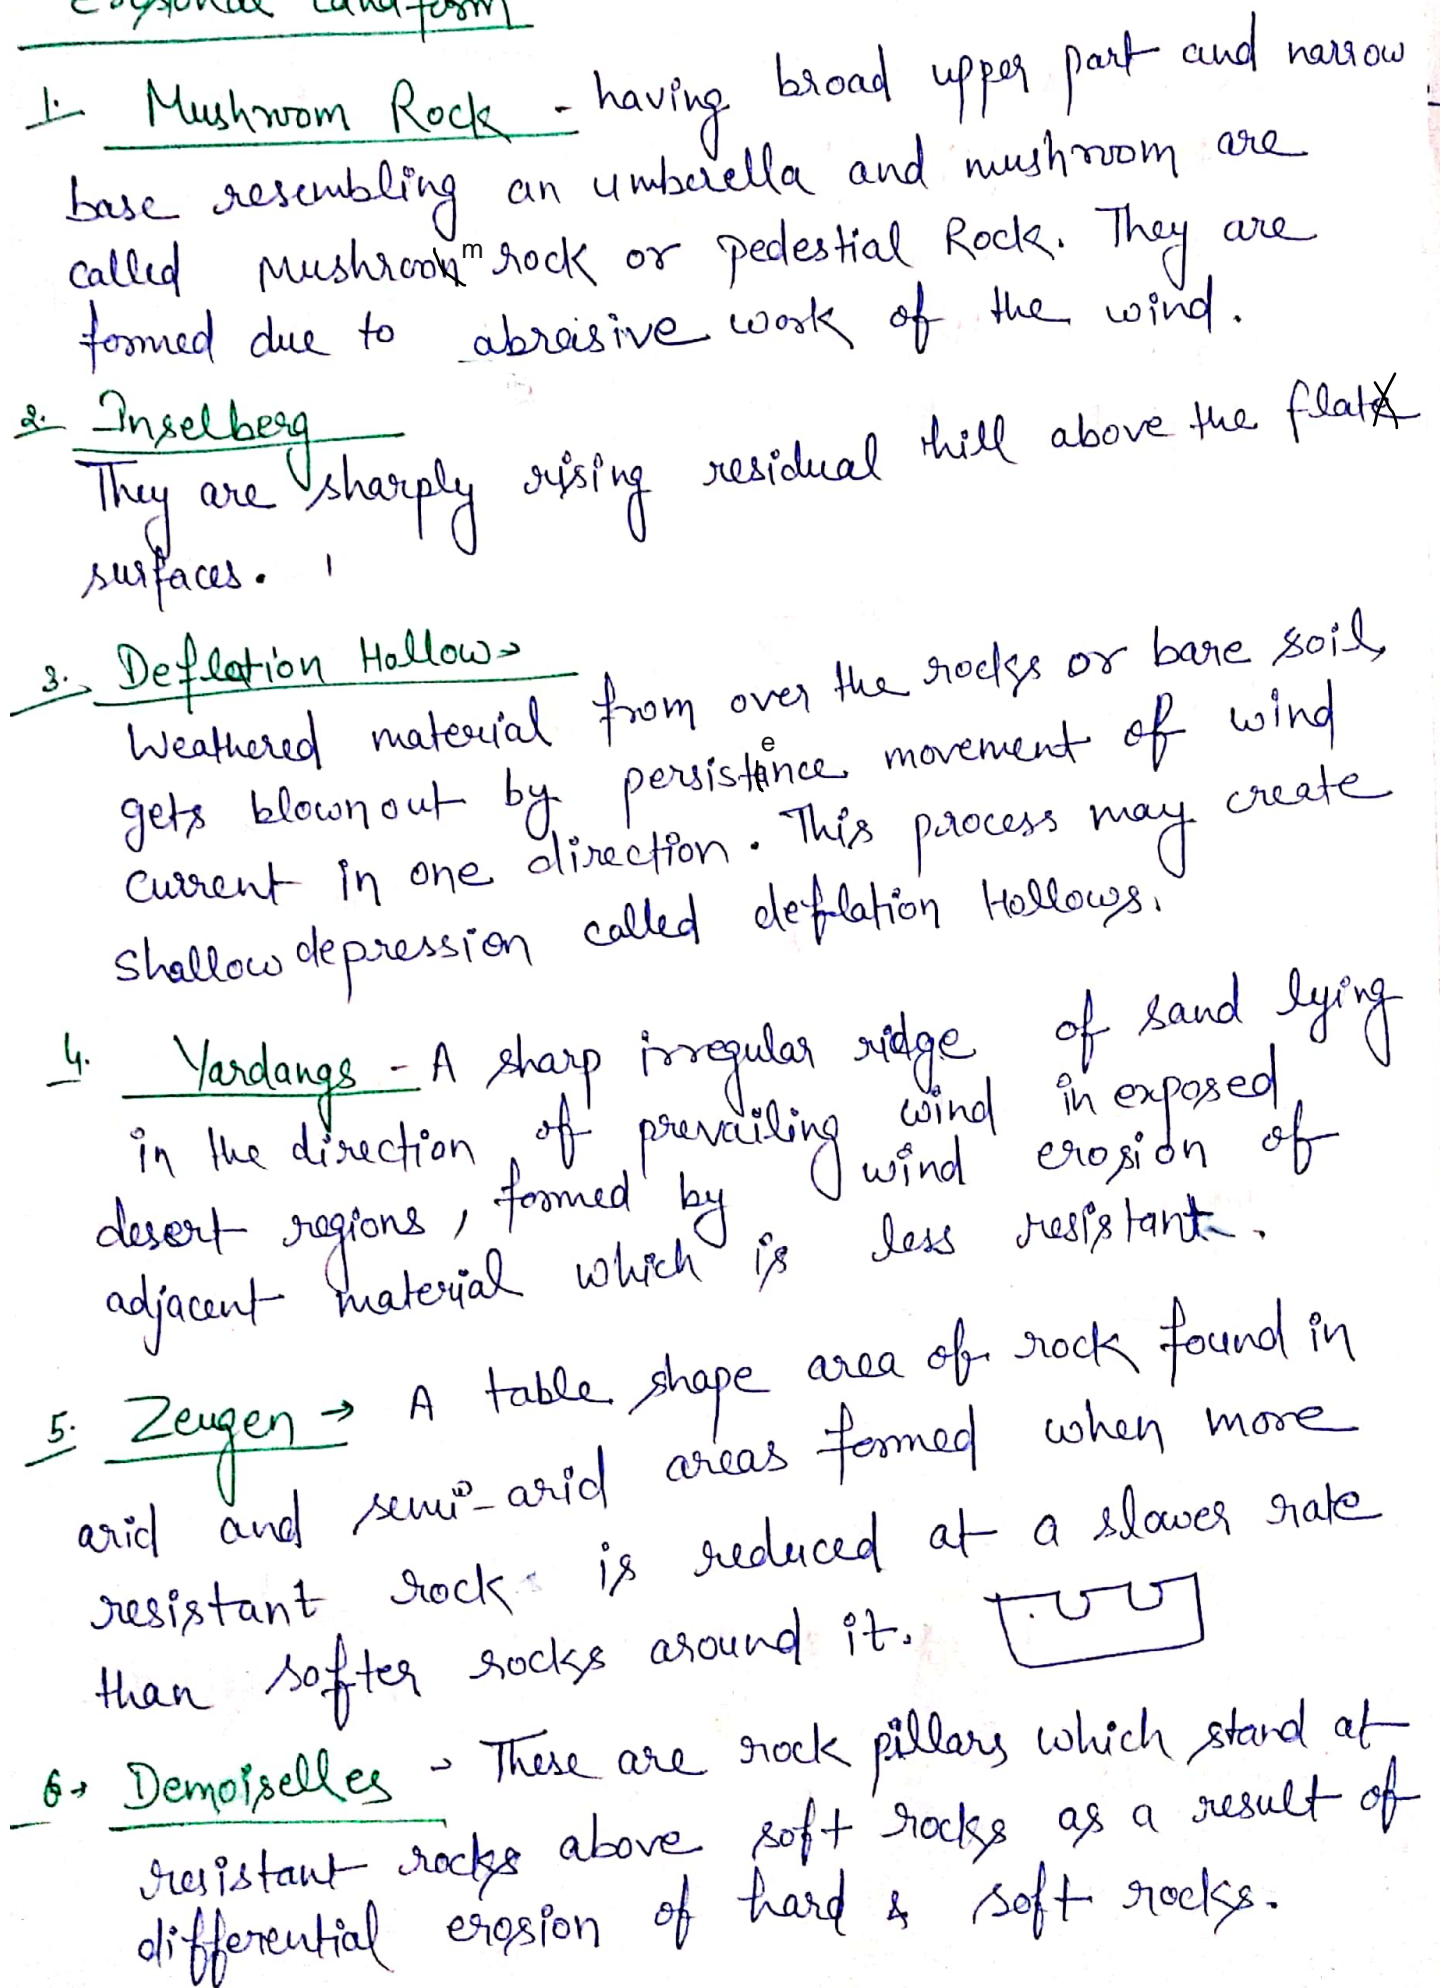 Erosional Landform
1. Mushroom Rock - having broad upper part and narrow
base resembling an umberella and mushroom are
called Mushroom rock or pedestial Rock. They are
formed due to abraisive work of the wind.
2. Inselberg
They are sharply rising residual hill above the flat
surfaces.
3. Deflation Hollow →
Weathered material from over the rocks or bare soil,
gets blown out by persistence movement of wind
current in one direction. This process may create
shallow depression called deflation Hollows.
4. Yardangs - A sharp irregular ridge of sand lying
in the direction of prevailing wind in exposed
desert regions, formed by wind erosion of
adjacent material which is less resistant.
5. Zeugen → A table shape area of rock found in
arid and semi-arid areas formed when more
resistant rock is reduced at a slower rate
than softer rocks around it.
6→ Demoiselles → These are rock pillars which stand at
resistant rocks above soft rocks as a result of
differential erosion of hard & soft rocks.